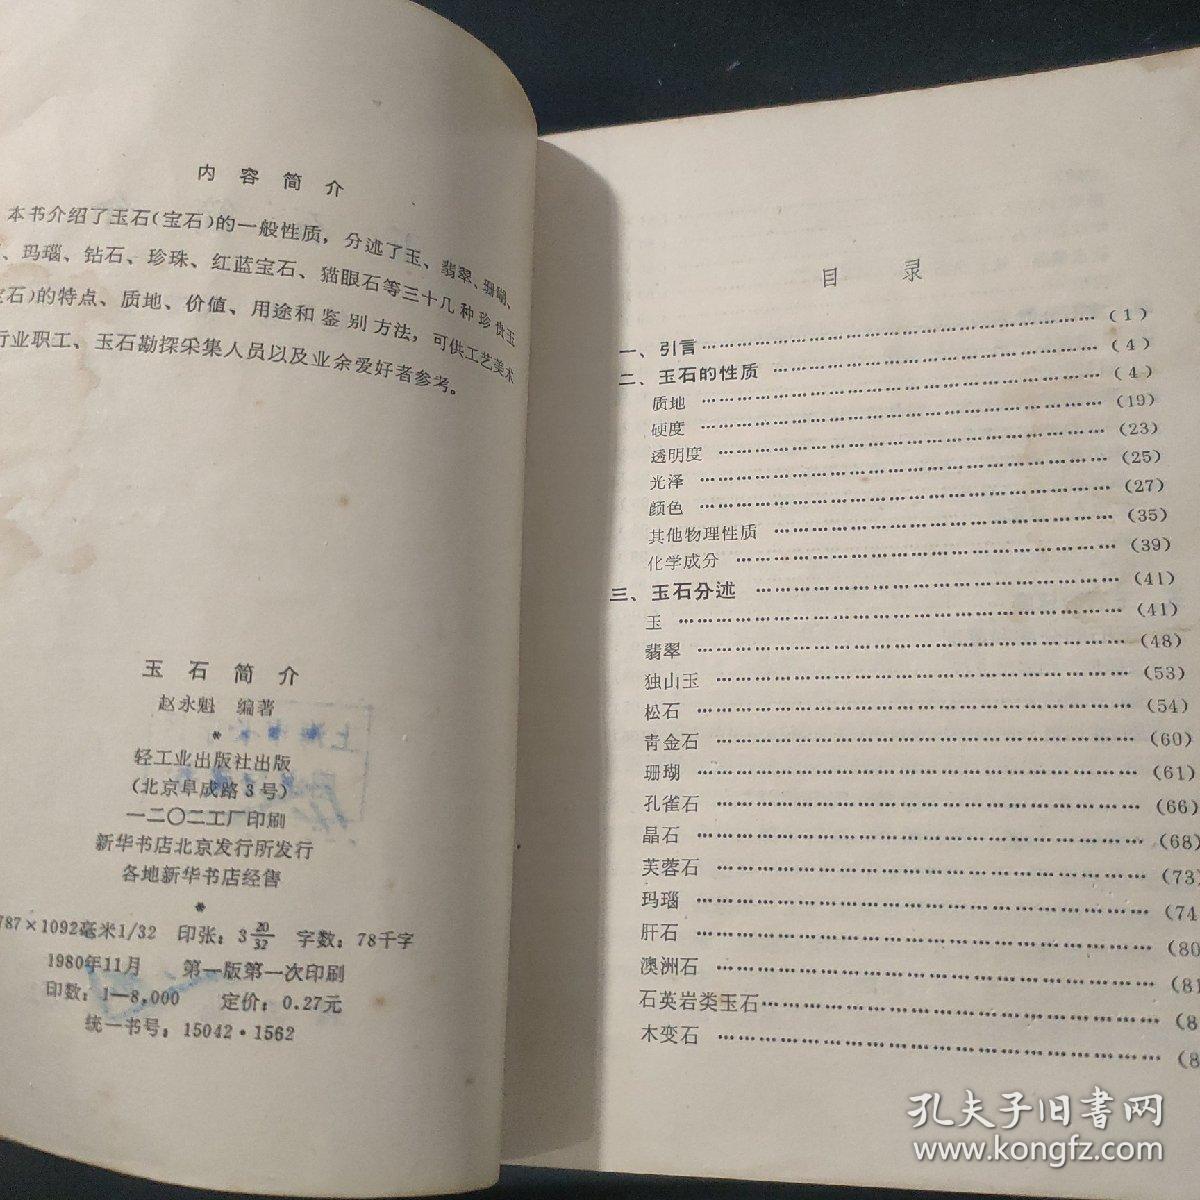 内容简介
本书介绍了玉石(宝石)的一般性质，分述了玉、翡翠、珊瑚、
、玛瑙、钻石、珍珠、红蓝宝石、猫眼石等三十几种珍贵玉
石)的特点、质地、价值、用途和鉴别方法，可供工艺美术
行业职工、玉石勘探采集人员以及业余爱好者参考。
玉石简介
赵永魁 编著
*
轻工业出版社出版
(北京阜成路3号)
一二〇二工厂印刷
新华书店北京发行所发行
各地新华书店经售
*
787×1092毫米1/32 印张：3 20/32 字数：78千字
1980年11月 第一版第一次印刷
印数：1—8,000 定价：0.27元
统一书号：15042·1562
目录
一、引言……………………(1)
二、玉石的性质……………………(4)
质地……………………(4)
硬度……………………(19)
透明度……………………(23)
光泽……………………(25)
颜色……………………(27)
其他物理性质……………………(35)
化学成分……………………(39)
三、玉石分述……………………(41)
玉……………………(41)
翡翠……………………(48)
独山玉……………………(53)
松石……………………(54)
青金石……………………(60)
珊瑚……………………(61)
孔雀石……………………(66)
晶石……………………(68)
芙蓉石……………………(73)
玛瑙……………………(74
肝石……………………(80
澳洲石……………………(81
石英岩类玉石……………………(8
木变石……………………(8
孔夫子旧书网
www.kongfz.com